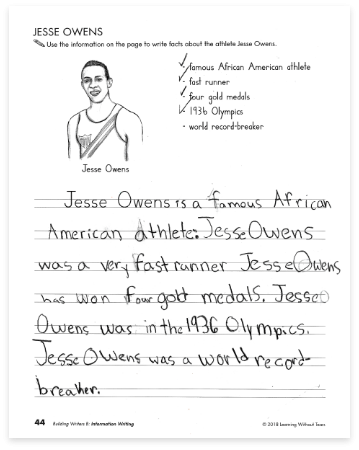 JESSE OWENS
Use the information on the page to write facts about the athlete Jesse Owens.
famous African American athlete
fast runner
four gold medals
1936 Olympics
· world record-breaker
Jesse Owens
Jesse Owens is a famous African
American athlete. Jesse Owens
was a very fast runner Jesse Owens
has won four gold medals. Jesse
Owens was in the 1936 Olympics.
Jesse Owens was a world record-
breaker.
44 Building Writers B: Information Writing © 2018 Learning Without Tears